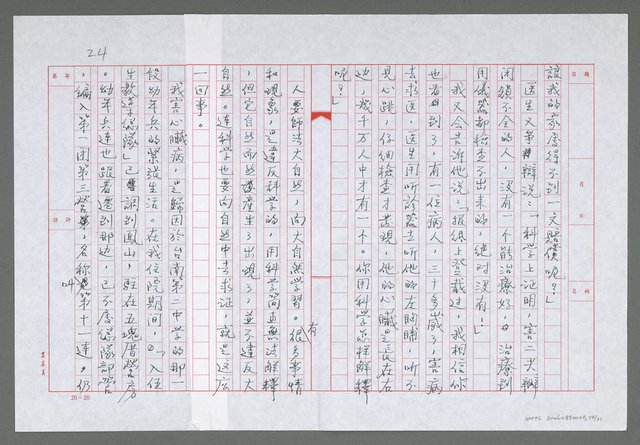 24
該我的家屬得不到一文賠償呢？」
醫生又爭辯說：「科学上証明，害二尖瓣
閉鎖不全的人，沒有一个能治療好，治療到
用儀器都檢查不出来的，絕对沒有！」
我又会告訴他說：「报纸上登载过，我相信你
也看到了，有一位病人，三十多歲了，害病
去求医，医生用听診器去听他的左胸脯，听不
見心跳，仔細檢查才发現，他的心臟是長在右
边，幾千万人中才有一个。你用科学怎樣解釋
呢？」
人要師法大自然，向大自然学習。很多事情
有
和現象，是違反科学的，用科学简直無法解釋
，但它自然而然產生了出現了，並不違反大
自然。連科学也要向自然中去求証，就是这麽
一回事。
我害心臟病，是歸因於台南第二中学的那一
段幼年兵的緊張生活。在我住院期間，「入伍
生教導總隊」已調到鳳山，駐在五塊厝營房
。幼年兵連也跟着遷到那边，已不属總隊部管
，編入第一团第三營，名称叫第十一連。仍
題目
月
日
姓名
等第
評語
20×20
NMTL